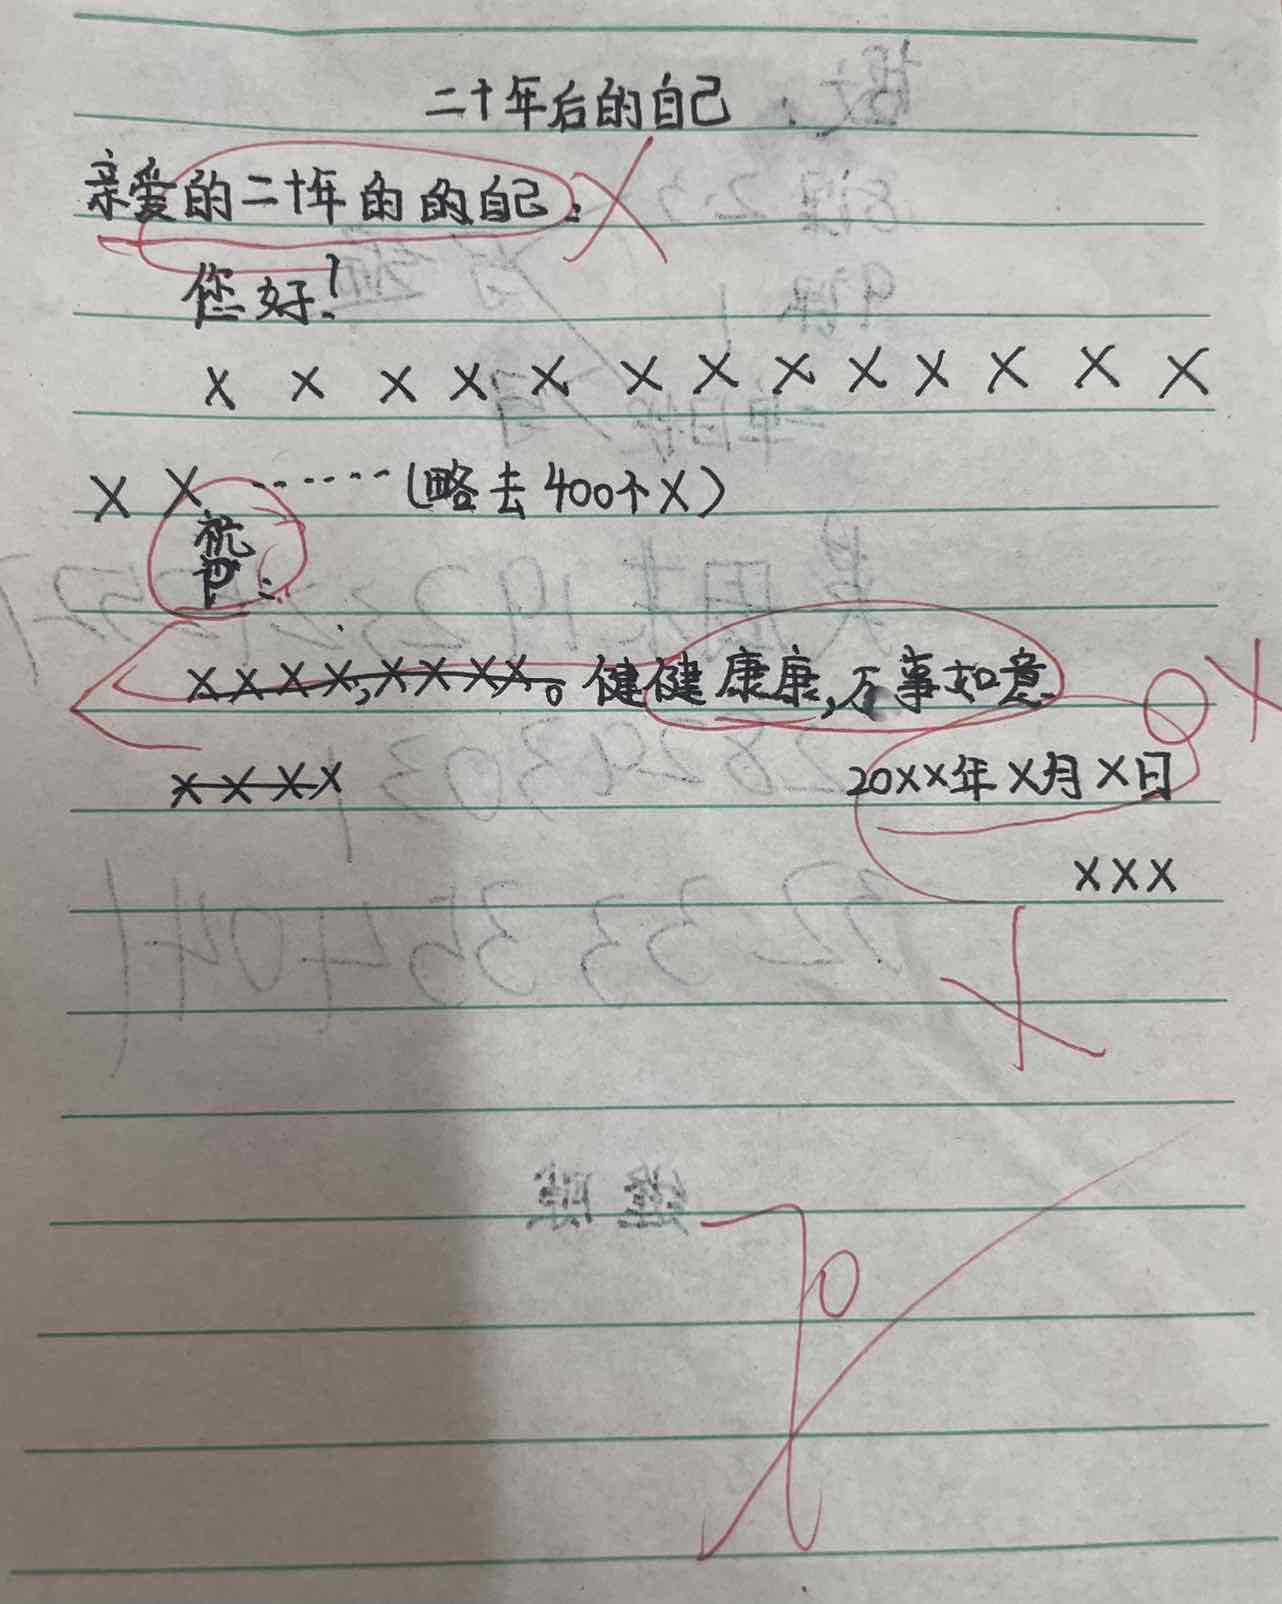 二十年后的自己
亲爱的二十年的的自己:
您好!
X X X X X X X X X X X X X
X X ……(略去400个X)
祝
XXXX,XXXX。健健康康,万事如意
XXXX 20XX年X月X日
XXX